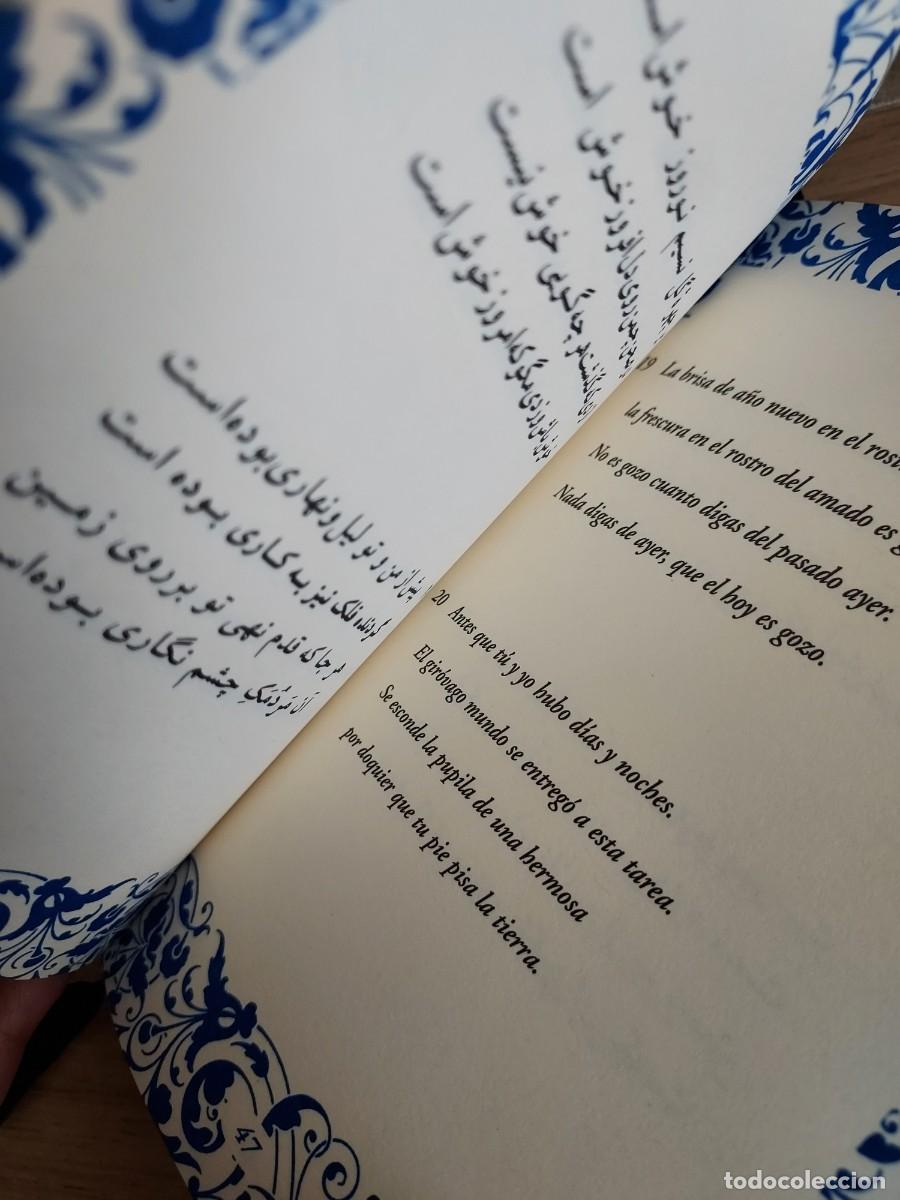 نسیم نوروز خوش است
چمن روی دل‌افروز خوش است
گذشت هر چه گویی خوش نیست
خوش باش و ز دی مگو که امروز خوش است
پیش از من و تو لیل و نهاری بوده است
گردنده فلک نیز به کاری بوده است
هر جا که قدم نهی تو بر روی زمین
آن مَردُمَکِ چشم نگاری بوده است
19 La brisa de año nuevo en el
la frescura en el rostro del amado es
No es gozo cuanto digas del pasado ayer.
Nada digas de ayer, que el hoy es gozo.
20 Antes que tú y yo hubo días y noches.
El giróvago mundo se entregó a esta tarea.
Se esconde la pupila de una hermosa
por doquier que tu pie pisa la tierra.
47
todocoleccion